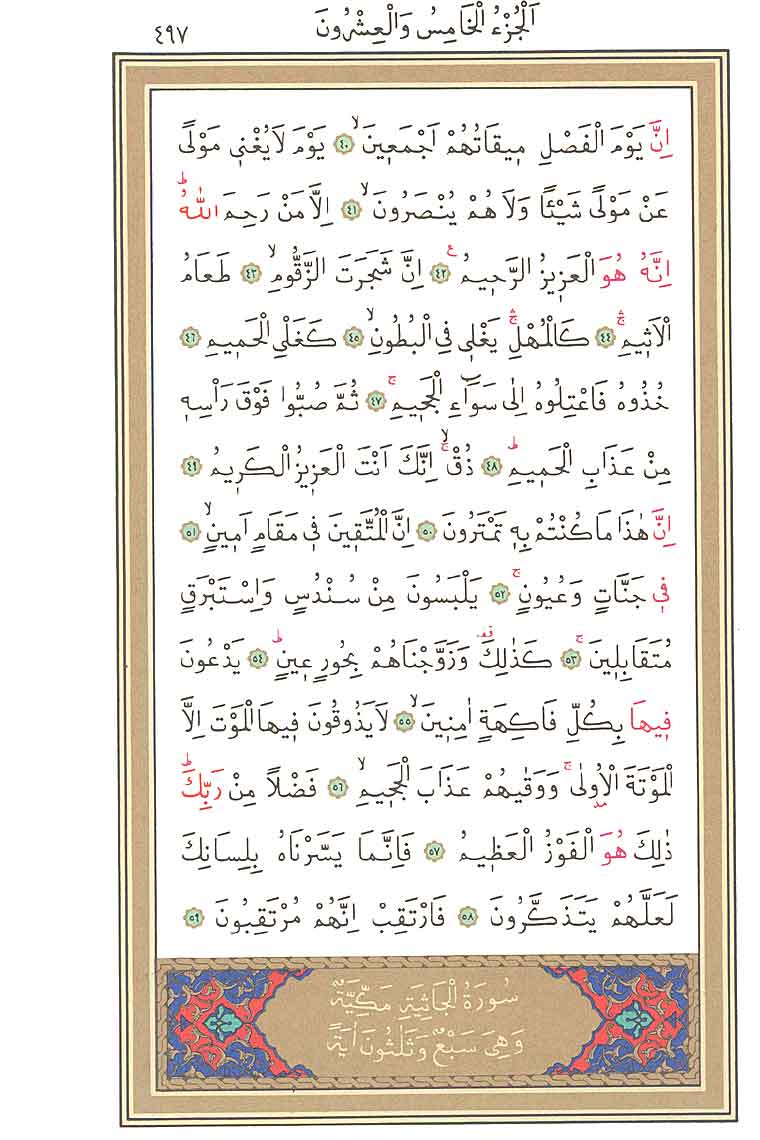 اَلْجُزْءُ الْخَامِسُ وَالْعِشْرُونَ ٤٩٧
اِنَّ يَوْمَ الْفَصْلِ م۪يقَاتُهُمْ اَجْمَع۪ينَۙ ﴿٤٠﴾ يَوْمَ لَا يُغْن۪ي مَوْلًى
عَنْ مَوْلًى شَيْـًٔا وَلَا هُمْ يُنْصَرُونَۙ ﴿٤١﴾ اِلَّا مَنْ رَحِمَ اللّٰهُۜ
اِنَّهُ هُوَ الْعَز۪يزُ الرَّح۪يمُ۟ ﴿٤٢﴾ اِنَّ شَجَرَتَ الزَّقُّومِۙ ﴿٤٣﴾ طَعَامُ
الْاَث۪يمِۚۛ ﴿٤٤﴾ كَالْمُهْلِۚۛ يَغْل۪ي فِي الْبُطُونِۙ ﴿٤٥﴾ كَغَلْيِ الْحَم۪يمِ ﴿٤٦﴾
خُذُوهُ فَاعْتِلُوهُ اِلٰى سَوَٓاءِ الْجَح۪يمِۚ ﴿٤٧﴾ ثُمَّ صُبُّوا فَوْقَ رَأْسِه۪
مِنْ عَذَابِ الْحَم۪يمِۜ ﴿٤٨﴾ ذُقْۙۚ اِنَّكَ اَنْتَ الْعَز۪يزُ الْكَر۪يمُ ﴿٤٩﴾
اِنَّ هٰذَا مَا كُنْتُمْ بِه۪ تَمْتَرُونَ ﴿٥٠﴾ اِنَّ الْمُتَّق۪ينَ ف۪ي مَقَامٍ اَم۪ينٍۙ ﴿٥١﴾
ف۪ي جَنَّاتٍ وَعُيُونٍۚ ﴿٥٢﴾ يَلْبَسُونَ مِنْ سُنْدُسٍ وَاِسْتَبْرَقٍ
مُتَقَابِل۪ينَۚ ﴿٥٣﴾ كَذٰلِكَ۠ وَزَوَّجْنَاهُمْ بِحُورٍ ع۪ينٍۜ ﴿٥٤﴾ يَدْعُونَ
ف۪يهَا بِكُلِّ فَاكِهَةٍ اٰمِن۪ينَۙ ﴿٥٥﴾ لَا يَذُوقُونَ ف۪يهَا الْمَوْتَ اِلَّا
الْمَوْتَةَ الْاُو۫لٰىۚ وَوَقٰيهُمْ عَذَابَ الْجَح۪يمِۙ ﴿٥٦﴾ فَضْلًا مِنْ رَبِّكَۜ
ذٰلِكَ هُوَ الْفَوْزُ الْعَظ۪يمُ ﴿٥٧﴾ فَاِنَّمَا يَسَّرْنَاهُ بِلِسَانِكَ
لَعَلَّهُمْ يَتَذَكَّرُونَ ﴿٥٨﴾ فَارْتَقِبْ اِنَّهُمْ مُرْتَقِبُونَ ﴿٥٩﴾
سُورَةُ الْجَاثِيَةِ مَكِّيَّةٌ
وَهِيَ سَبْعٌ وَثَلٰثُونَ اٰيَةً